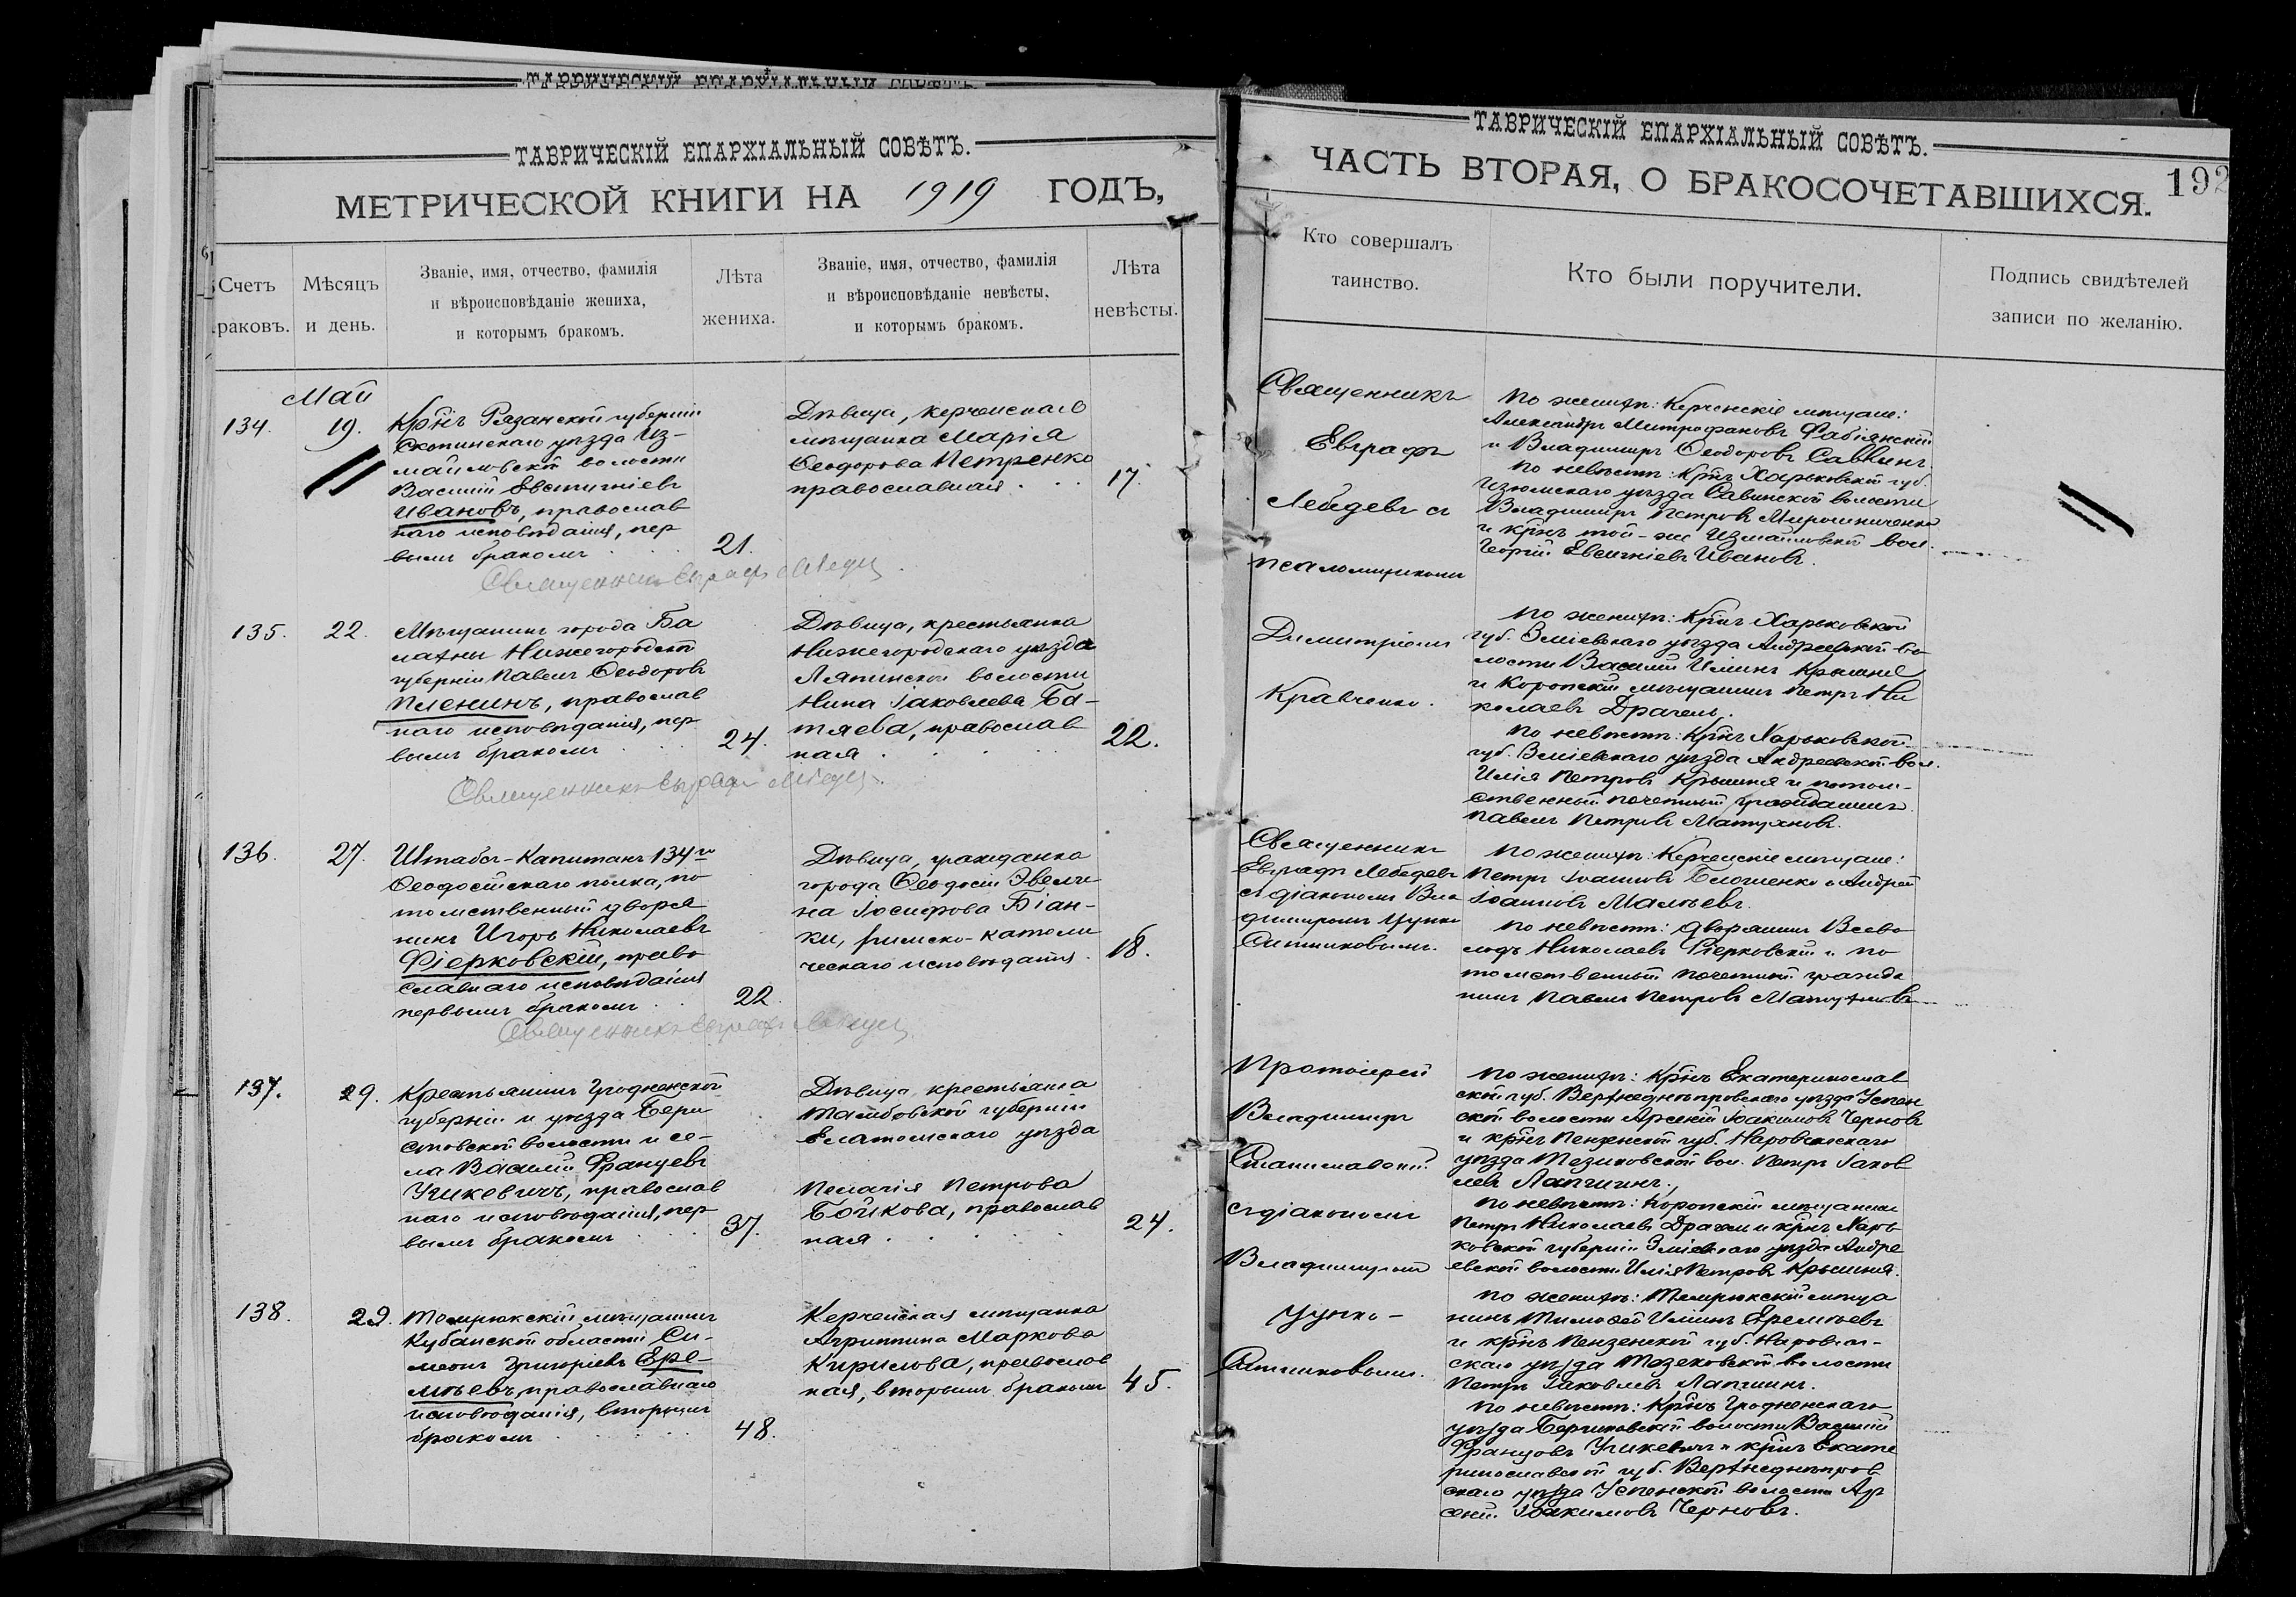 ТАВРИЧЕСКІЙ ЕПАРХІАЛЬНЫЙ СОВѢТЪ.
МЕТРИЧЕСКОЙ КНИГИ НА 1919 ГОДЪ,
Счетъ
браковъ.
Мѣсяцъ
и день.
Званіе, имя, отчество, фамилія
и вѣроисповѣданіе жениха,
и которымъ бракомъ.
Лѣта
жениха.
Званіе, имя, отчество, фамилія
и вѣроисповѣданіе невѣсты,
и которымъ бракомъ.
Лѣта
невѣсты.
Май
134.
19.
Крнъ Рязанской губерніи
Скопинскаго уѣзда Из-
майловской волости
Василій Евстигніевъ
Ивановъ, православ
наго исповѣданія, пер
вымъ бракомъ
21.
Дѣвица, керченская
мѣщанка Марія
Ѳеодорова Петренко
православная
17.
Священникъ Евграфъ Лебедев
135.
22.
Мѣщанинъ города Ба
лахны Нижегородской
губерніи Павелъ Ѳеодоровъ
Пленинъ, православ
наго исповѣданія, пер
вымъ бракомъ
24.
Дѣвица, крестьянка
Нижегородскаго уѣзда
Ляпинской волости
Нина Іаковлева Ба-
тяева, православ
ная
22.
Священникъ Евграфъ Лебедев
136.
27.
Штабсъ-Капитанъ 134го
Ѳеодосійскаго полка, по
томственный дворя
нинъ Игорь Николаевъ
Фіерковскій, право
славнаго исповѣданія
первымъ бракомъ
22.
Дѣвица, гражданка
города Ѳеодосіи Эвели
на Іосифова Біан-
ки, римско-католи
ческаго исповѣданія
18.
Священникъ Евграфъ Лебедев
137.
29.
Крестьянинъ Гродненской
губерніи и уѣзда Бери
стовской волости и се-
ла Василій Францевъ
Учкевичъ, православ
наго исповѣданія, пер
вымъ бракомъ
37.
Дѣвица, крестьянка
Тамбовской губерніи
Елатомскаго уѣзда
Пелагія Петрова
Бойкова, православ
ная
24.
138.
29.
Темрюкскій мѣщанинъ
Кубанской области Си-
меонъ Григоріевъ Ере-
мѣевъ, православнаго
исповѣданія, вторымъ
бракомъ
48.
Керченская мѣщанка
Агриппина Маркова
Кирилова, православ
ная, вторымъ бракомъ
45.
ТАВРИЧЕСКІЙ ЕПАРХІАЛЬНЫЙ СОВѢТЪ.
ЧАСТЬ ВТОРАЯ, О БРАКОСОЧЕТАВШИХСЯ.
192
Кто совершалъ
таинство.
Кто были поручители.
Подпись свидѣтелей
записи по желанію.
Священникъ
Евграфъ
Лебедевъ съ
псаломщикомъ
Димитріемъ
Кравченко.
По женихѣ: Керченскіе мѣщане:
Александръ Митрофановъ Фабіянскій
и Владимиръ Ѳеодоровъ Савкинъ.
По невѣстѣ: Крнъ Харьковской губ.
Изюмскаго уѣзда Савинской волости
Владимиръ Петровъ Мирошниченко
и крнъ той-же Измайловской вол.
Георгій Евсигніевъ Ивановъ.
По женихѣ: Крнъ Харьковской
губ. Зміевскаго уѣзда Андреевской во
лости Василій Илiинъ Крышня
и Коропскій мѣщанинъ Петръ Ни
колаевъ Драчель.
По невѣстѣ: Крнъ Харьковской
губ. Зміевскаго уѣзда Андреевской вол.
Илія Петровъ Крышня и потом-
ственный почетный гражданинъ
Павелъ Петровъ Матухновъ.
Священникъ
Евграфъ Лебедевъ
съ діакономъ Вла
димиромъ Чупко
Ситниковымъ.
По женихѣ: Керченскіе мѣщане:
Петръ Іоанновъ и Андрей
Іоанновъ Малѣевъ.
По невѣстѣ: дворянинъ Всево
лодъ Николаевъ Фіерковскій и по
томственный почетный гражда
нинъ Павелъ Петровъ Матухновъ
Протоіерей
Владимиръ
Станиславскій
съ діакономъ
Владимиромъ
Чупко-
Ситниковымъ.
По женихѣ: Крнъ Екатеринослав
ской губ. Верхнеднѣпровскаго уѣзда Успен
ской волости Арсеній Іоакимовъ Черновъ
и крнъ Пензенской губ. Наровчатскаго
уѣзда вол. Петръ Іаков
левъ Лапшинъ.
По невѣстѣ: Коропскій мѣщанинъ
Петръ Николаевъ Драчель и крнъ Харь
ковской губерніи Зміевскаго уѣзда Андре
евской волости Илія Петровъ Крышня.
По женихѣ: Темрюкскій мѣща
нинъ Тимоѳей Илiинъ Еремѣевъ
и крнъ Пензенской губ. Наровчат-
скаго уѣзда волости
Петръ Іаковлевъ Лапшинъ.
По невѣстѣ: Крнъ Гродненскаго
уѣзда волости Василій
Францовъ Учкевичъ и крнъ Екате
ринославской губ. Верхнеднѣпров
скаго уѣзда Успенской волости Ар
сеній Іоакимовъ Черновъ.